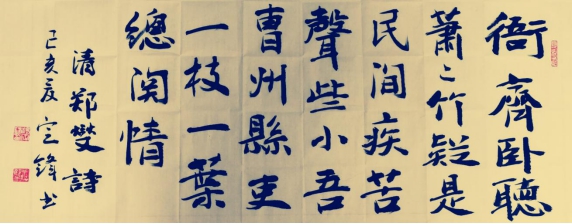 衙齋卧聽
蕭〻竹疑是
民间疾苦
聲些小吾
曹州縣吏
一枝一葉
總関情
清郑燮詩
己亥夏宝鋒书